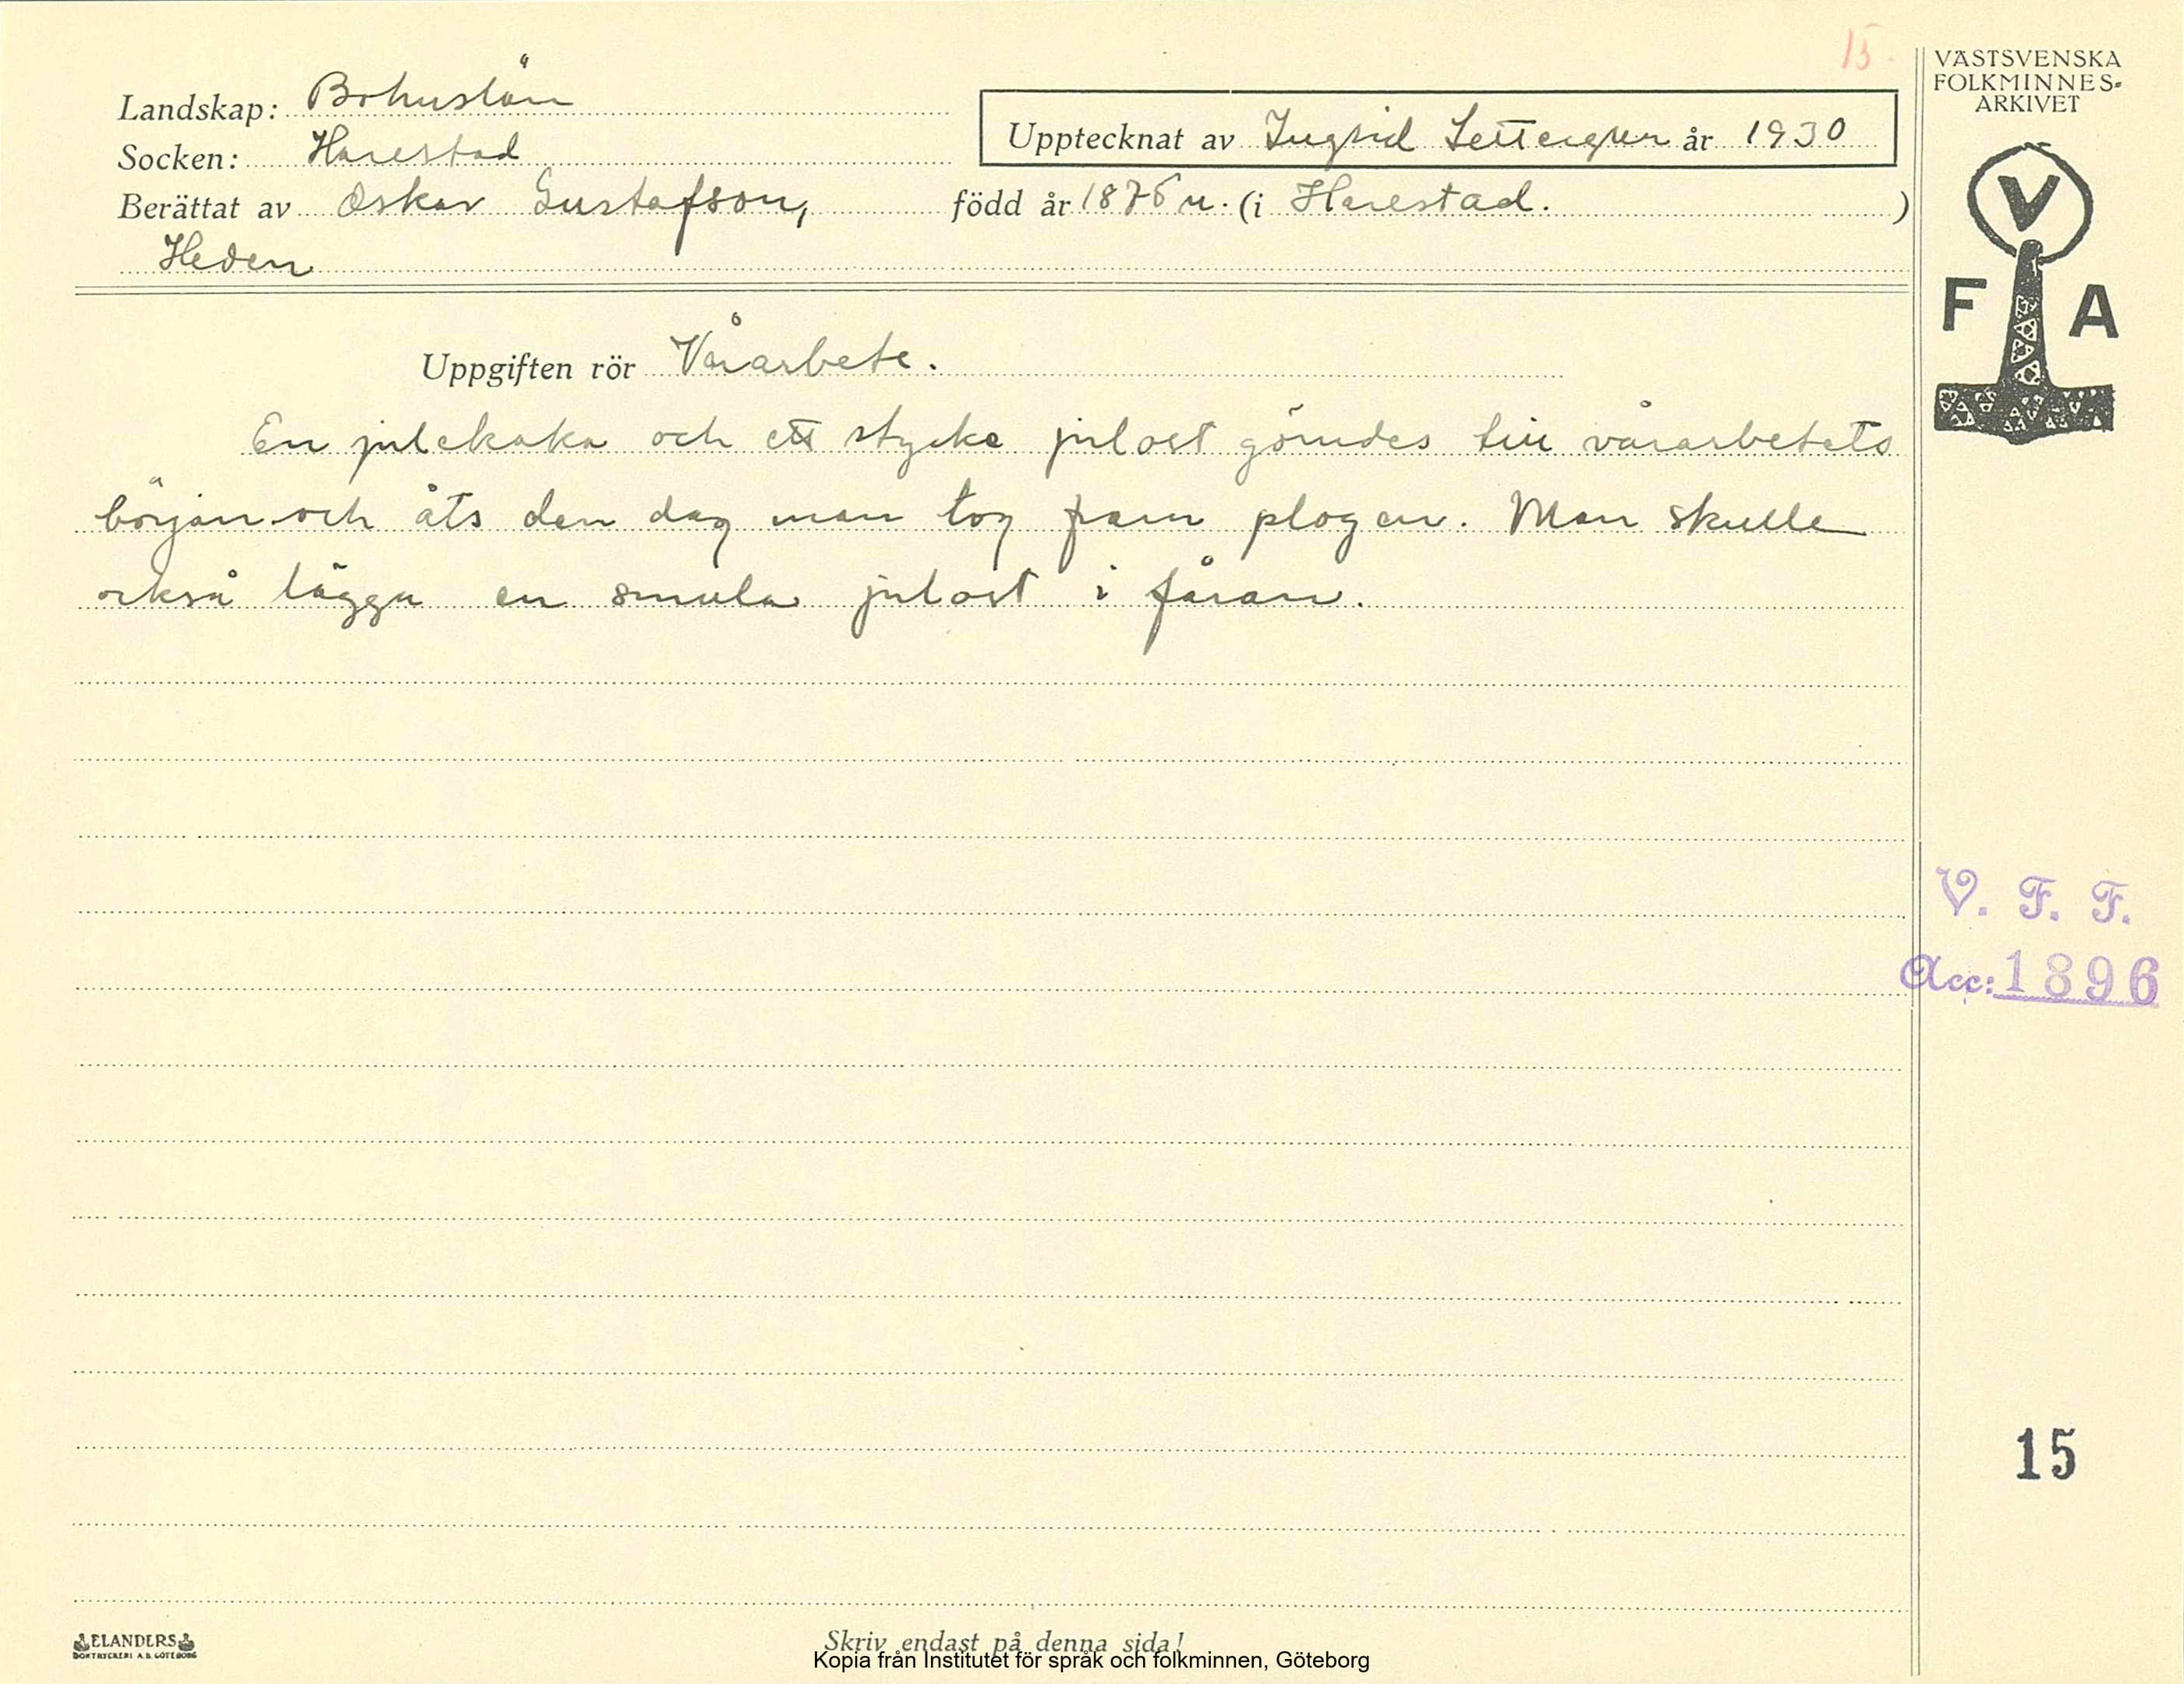 15.
VÄSTSVENSKA
FOLKMINNES-
ARKIVET
Landskap: Bohuslän
Upptecknat av Ingrid Settergren år 1930
Socken: Harestad
Berättat av Oskar Gustafson, född år 1876 (i Harestad. )
Heden
V
F A
Uppgiften rör Vårarbete.
En julekaka och ett stycke julost gömdes till vårarbetets
början och åts den dag man tog fram plogen. Man skulle
också lägga en smula julost i fåran.
V. F. F.
Acc: 1896
15
ELANDERS
BOKTRYCKERI A.B. GÖTEBORG
Skriv endast på denna sida!
Kopia från Institutet för språk och folkminnen, Göteborg